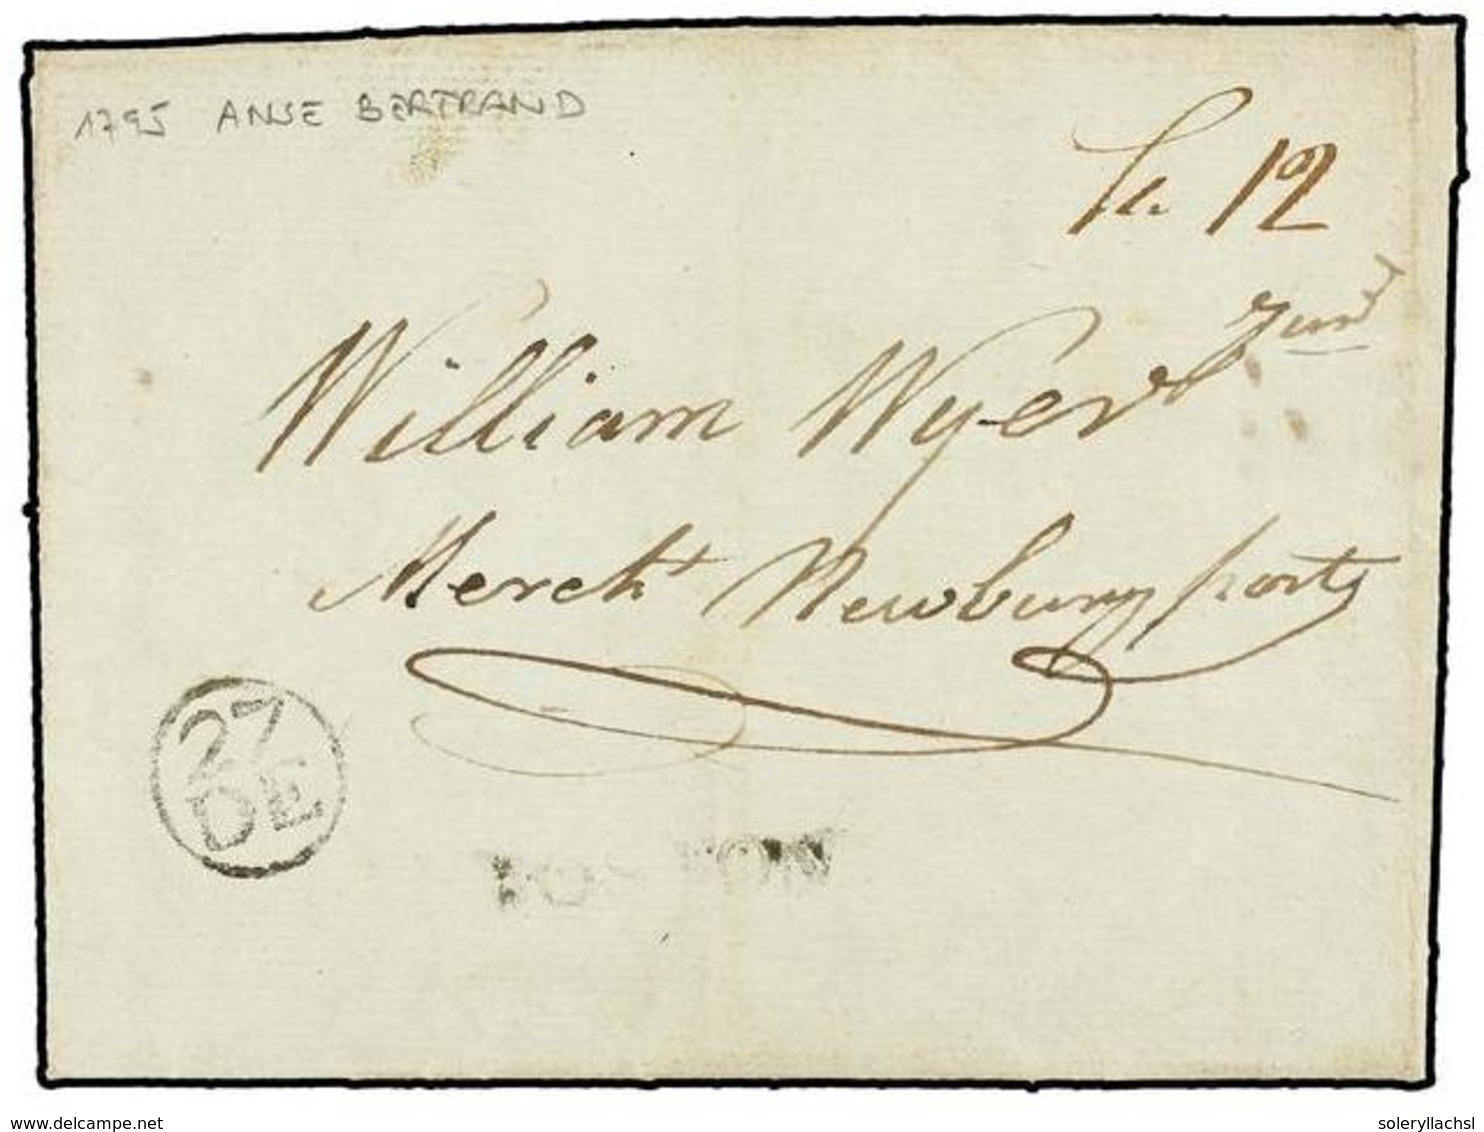 1795 ANSE BERTRAND
12
William Wyer Junr
Mercht Newburyport
27
DE
BOSTON
delcampe.net
soleryllachsl